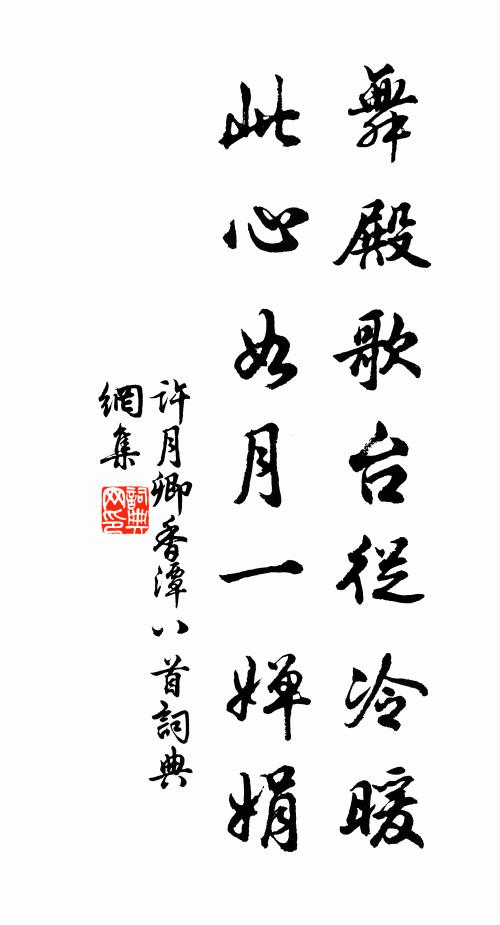 舞殿歌台從冷暖
此心如月一嬋娟
許月卿香潭八首詞典
網集
詞典
网印